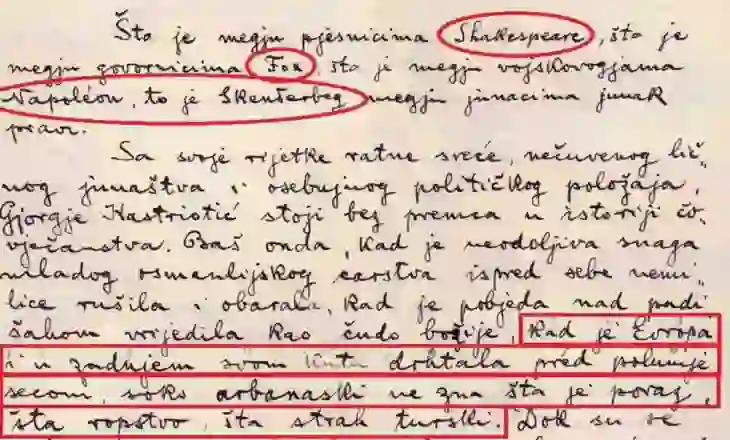 Što je megju pjesnicima Shakespeare, šta je
megju govornicima Fox, šta je megju vojskovogjama
Napoléon, to je Skenderbeg megju junacima junak
pravi.
Sa svoje rijetke ratne sreće, nečuvenog lič-
nog junaštva i osebujnog političkog položaja,
Gjorgje Kastriotić stoji bez premca u istoriji čo-
vječanstva. Baš onda, kad je neodoljiva snaga
mladog osmanlijskog carstva ispred sebe nemi-
lice rušila i obarala, kad je pobjeda nad padi
šahom vrijedila kao čudo božije, kad je Evropa
i u zadnjem svom kutu drhtala pred polumje
secom, soko arbanaski ne zna šta je poraz,
šta ropstvo, šta strah turski. Dok su se